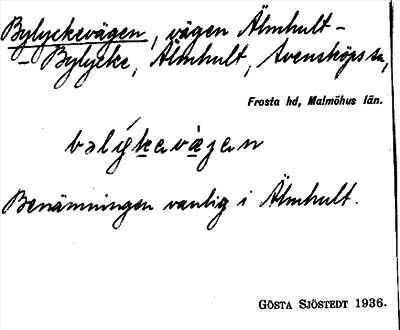 Bylyckevägen, vägen Älmhult –
– Bylycke, Älmhult, Svensköps sn,
Frosta hd, Malmöhus län.
Benämningen vanlig i Älmhult.
GÖSTA SJÖSTEDT 1936.